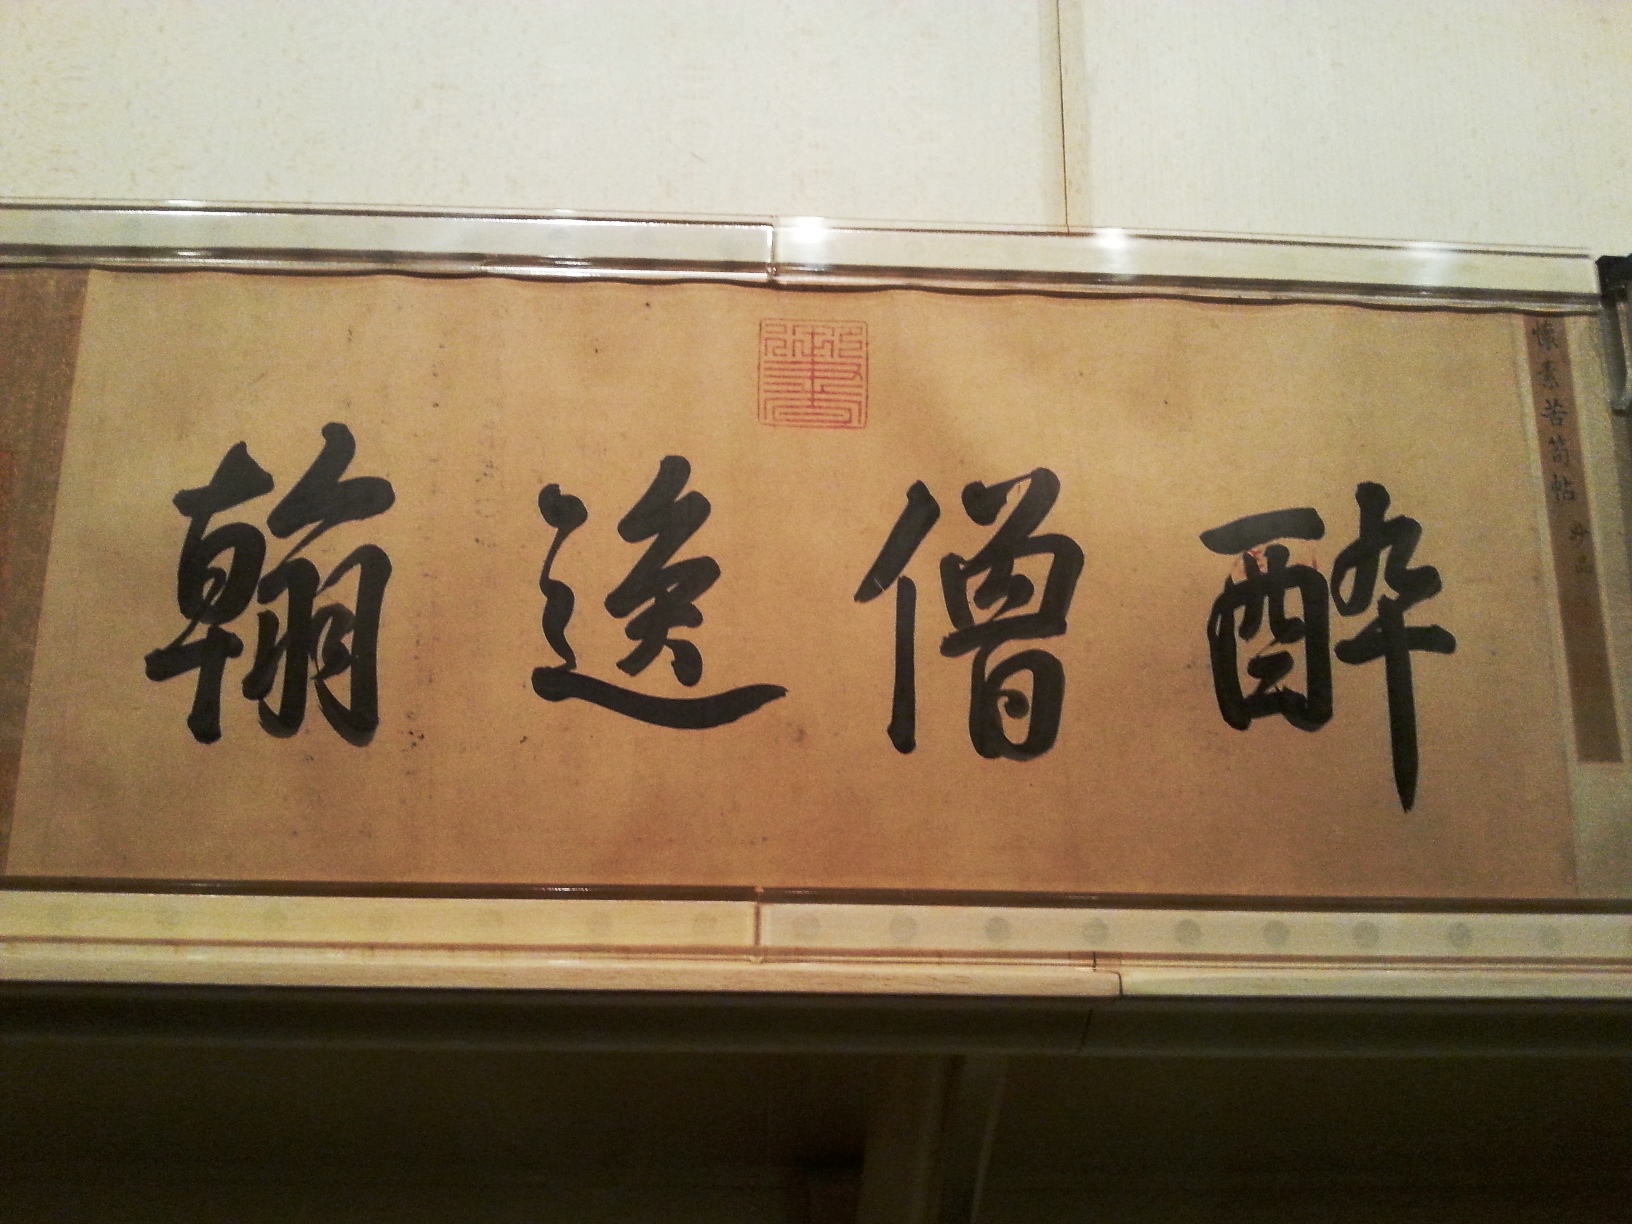 懷素苦筍帖
酔僧逸翰